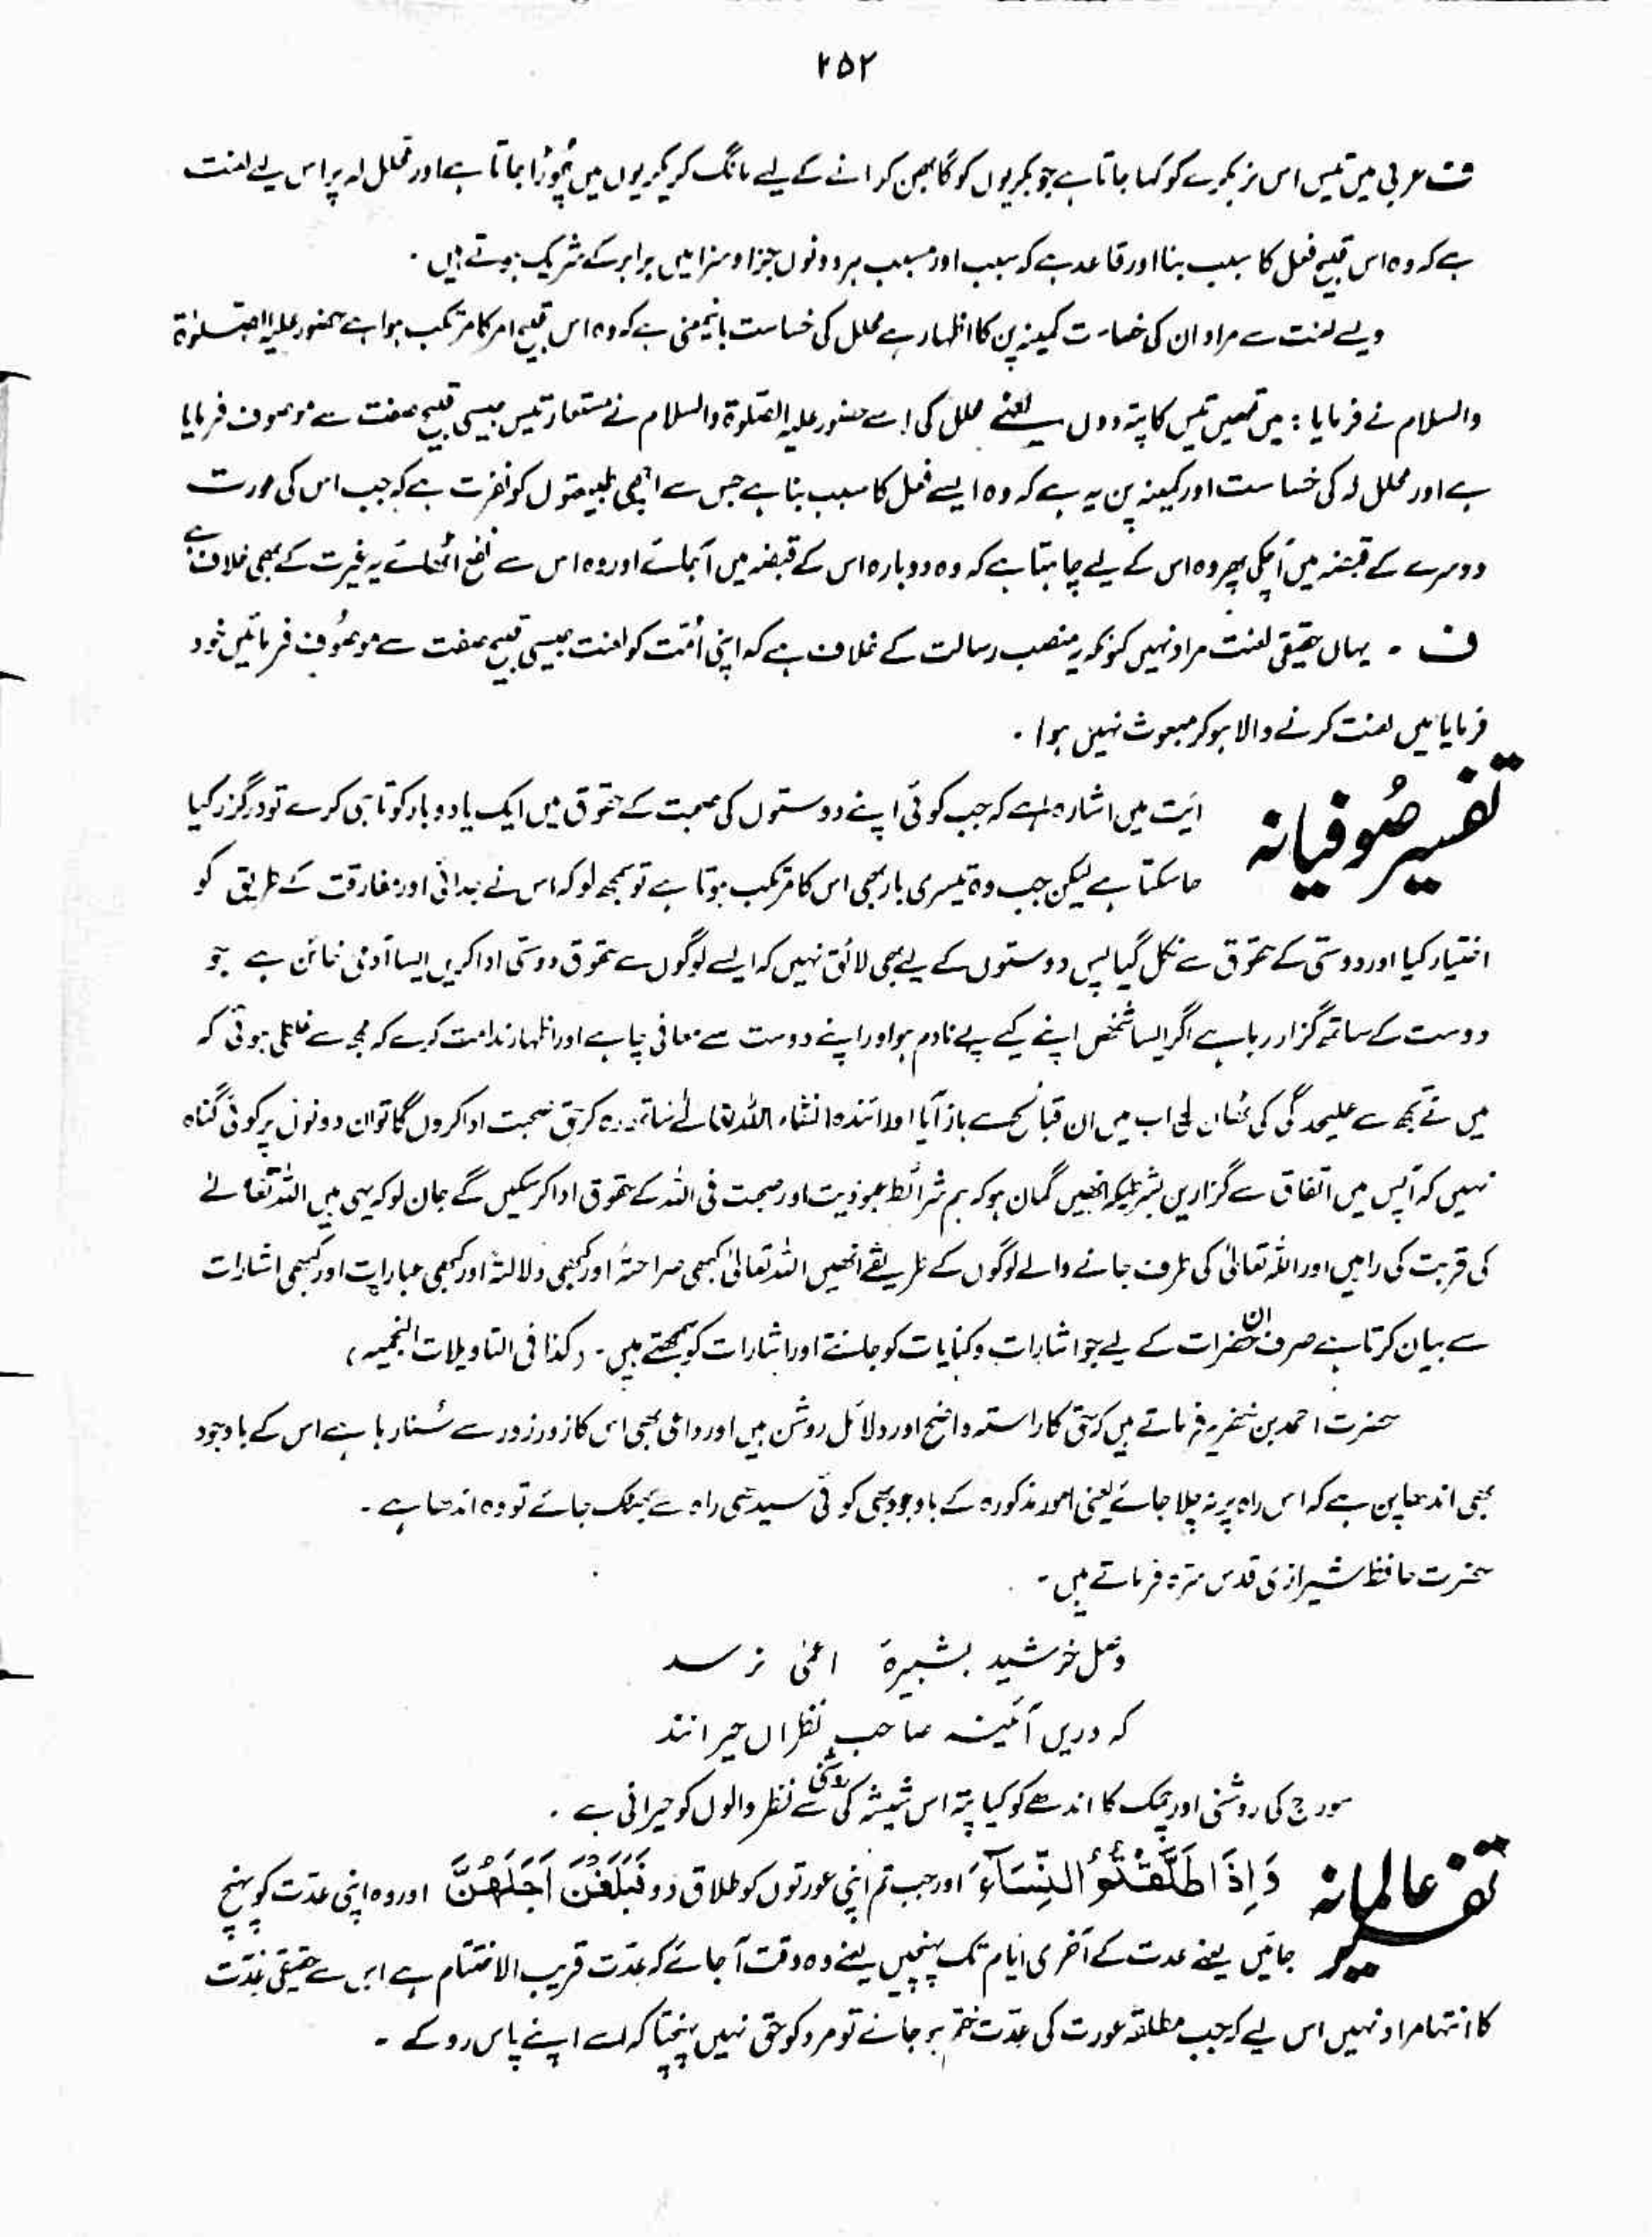 ۲۵۲
ف عربی میں تیس اس نر بکرے کو کہا جاتا ہے جو بکریوں کو گابھن کرانے کے لیے مانگ کر بکریوں میں چھوڑا جاتا ہے اور محلل لہ پر اس لیے لعنت
ہے کہ وہ اس قبیح فعل کا سبب بنا اور قاعدہے کہ سبب اور مسبب ہر دونوں جزا و سزا میں برابر کے شریک ہوتے ہیں ۔
ویسے لعنت سے مراد ان کی خساست کمینہ پن کا اظہار ہے محلل کی خساست بایںمعنی ہے کہ وہ اس قبیح امر کا مرتکب ہوا ہے حضور علیہ الصلوٰۃ
والسلام نے فرمایا : میں تمھیں تیس کا پتہ دوں یعنے محلل کی اسے حضور علیہ الصلوٰۃ والسلام نے مستعار تیس جیسی قبیح صفت سے موصوف فرمایا
ہے اور محلل لہ کی خساست اور کمینہ پن یہ ہے کہ وہ ایسے فعل کا سبب بنا ہے جس سے اچھی طبیعتوں کو نفرت ہے کہ جب اس کی عورت
دوسرے کے قبضہ میں آ چکی پھر وہ اس کے لیے چاہتا ہے کہ وہ دوبارہ اس کے قبضہ میں آجائے اور وہ اس سے نفع اٹھائے یہ غیرت کے بھی خلاف ہے
ف ۔ یہاں حقیقی لعنت مراد نہیں کیونکہ یہ منصب رسالت کے خلاف ہے کہ اپنی اُمت کو لعنت جیسی قبیح صفت سے موصُوف فرمائیں خود
فرمایا میں لعنت کرنے والا ہو کر مبعوث نہیں ہوا ۔
تفسیر صُوفیانہ
آیت میں اشارہ ہے کہ جب کوئی اپنے دوستوں کی صحبت کے حقوق میں ایک یا دو بار کوتاہی کرے تو درگزر کیا
جاسکتا ہے لیکن جب وہ تیسری بار بھی اس کا مرتکب ہوتا ہے تو سمجھ لو کہ اس نے جدائی اور مفارقت کے طریق کو
اختیار کیا اور دوستی کے حقوق سے نکل گیا پس دوستوں کے لیے بھی لائق نہیں کہ ایسے لوگوں سے حقوق دوستی ادا کریں ایسا آدمی خائن ہے جو
دوست کے ساتھ گزار رہا ہے اگر ایسا شخص اپنے کیے پہ نادم ہو اور اپنے دوست سے معافی چاہے اور اظہار ندامت کرے کہ مجھ سے غلطی ہوئی کہ
میں نے تجھ سے علیحدگی کی ٹھان لی اب میں ان قبائح سے باز آیا اور آئندہ انشاء اللہ تعالےٰ ساتھ رہ کر حق صحبت ادا کروں گا تو ان دونوں پر کوئی گناہ
نہیں کہ آپس میں اتفاق سے گزاریں بشرطیکہ انھیں گمان ہو کہ ہم شرائط عبودیت اور صحبت فی اللہ کے حقوق ادا کر سکیں گے جان لو کہ یہی ہیں اللہ تعالےٰ
کی قربت کی راہیں اور اللہ تعالیٰ کی طرف جانے والے لوگوں کے طریقے انھیں اللہ تعالیٰ کبھی صراحتہً اور کبھی دلالۃً اور کبھی عبارات اور کبھی اشارات
سے بیان کرتا ہے صرف ان حضرات کے لیے جو اشارات و کنایات کو جانتے اور اشارات کو سمجھتے ہیں ۔ (کذا فی التاویلات النجمیہ)
حضرت احمد بن خضریہ فرماتے ہیں کہ حق کا راستہ واضح اور دلائل روشن ہیں اور داعی بھی اس کا زور زور سے سُنا رہا ہے اس کے باوجود
بھی اندھا پن ہے کہ اس راہ پر نہ چلا جائے یعنی امور مذکورہ کے باوجود بھی کوئی سیدھی راہ سے بھٹک جائے تو وہ اندھا ہے ۔
حضرت حافظ شیرازی قدس سرہ فرماتے ہیں ۔
وصل خرشید بشبپرۂ اعمیٰ نرسد
کہ دریں آئینہ صاحب نظراں حیرانند
سورج کی روشنی اور چمک کا اندھے کو کیا پتہ اس شیشہ کی روشنی سے نظر والوں کو حیرانی ہے ۔
تفسیر عالمانہ
وَاِذَا طَلَّقْتُمُ النِّسَآءَ اور جب تم اپنی عورتوں کو طلاق دو فَبَلَغْنَ اَجَلَهُنَّ اور وہ اپنی عدّت کو پہنچ
جائیں یعنے عدت کے آخری ایام تک پہنچیں یعنے وہ وقت آ جائے کہ عدّت قریب الاختتام ہے اس سے حقیقی عدّت
کا انتہا مراد نہیں اس لیے کہ جب مطلقہ عورت کی عدّت ختم ہو جائے تو مرد کو حق نہیں پہنچتا کہ اسے اپنے پاس روکے ۔